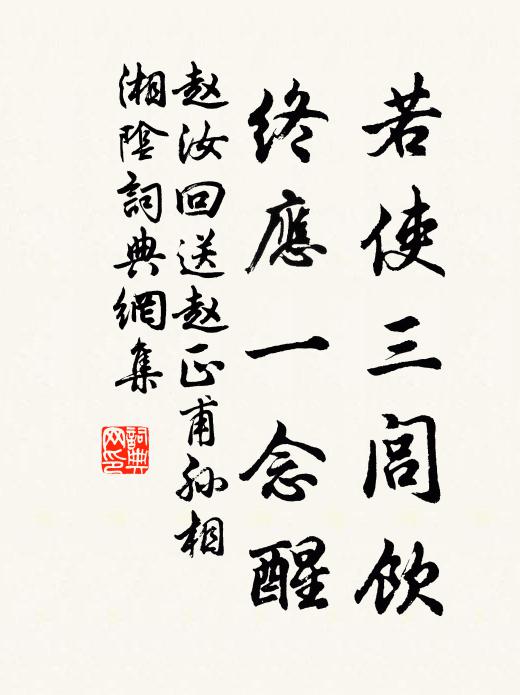 若使三闾饮
終應一念醒
赵汝回送赵正甫孙相
湘陰詞典網集
詞典网印